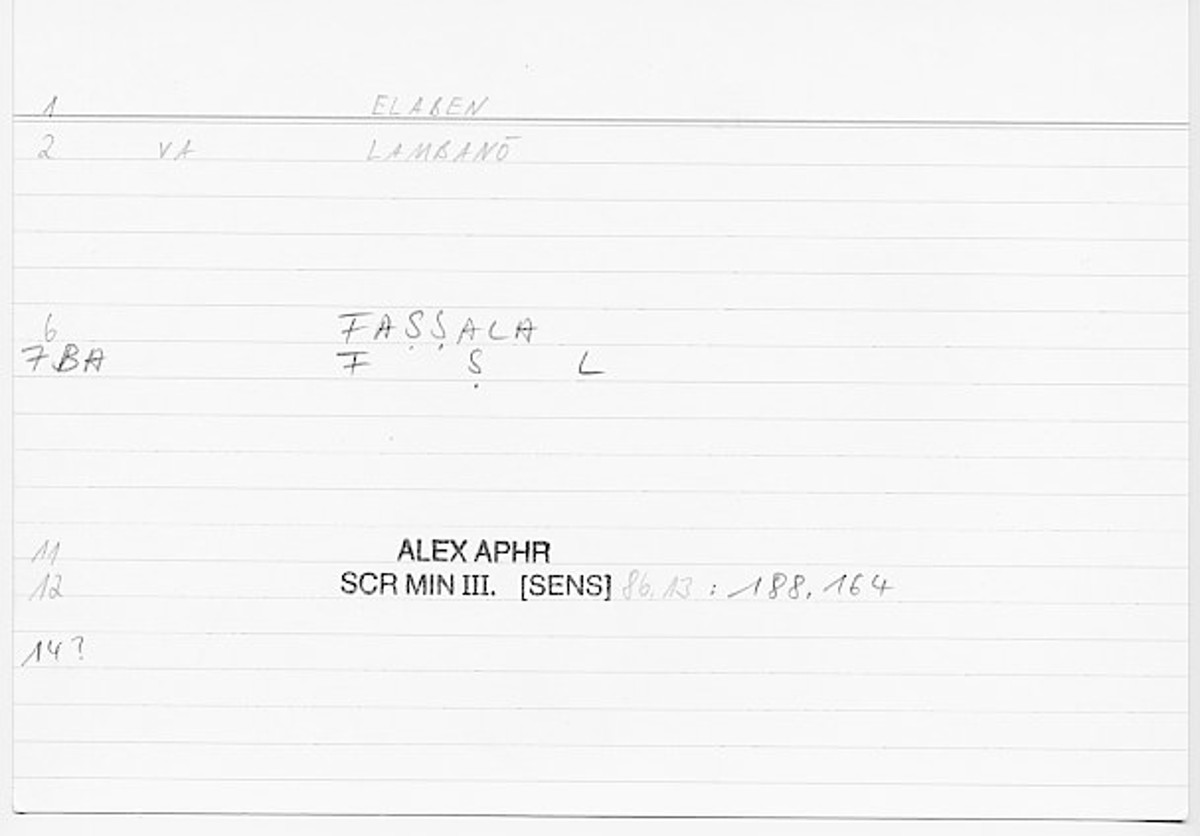 1 ELABEN
2 VA LAMBANŌ
6 FAṢṢALA
7 BA F Ṣ L
11 ALEX APHR
12 SCR MIN III. [SENS] 86,13 : 188,164
14?